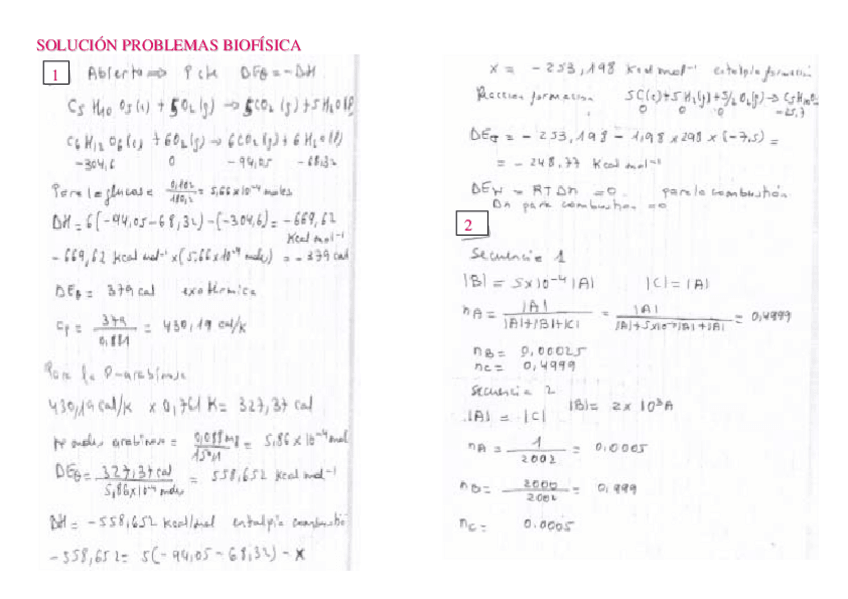 SOLUCIÓN PROBLEMAS BIOFÍSICA
1
Abierto => P cte DEθ = -DH
C5 H10 O5(s) + 5O2(g) -> 5CO2(g) + 5H2O(l)
C6H12O6(s) + 6O2(g) -> 6CO2(g) + 6H2O(l)
-304,6 0 -94,05 -68,32
Para la glucosa 0,102/180,2 = 5,66x10-4 moles
DH = 6(-94,05-68,32)-(-304,6) = -669,62
Kcal mol-1
-669,62 Kcal mol-1 x(5,66x10-4 moles) = -379 cal
DEθ = 379 cal exotérmica
Cp = 379/0,881 = 430,19 cal/K
Para la D-arabinosa
430,19 cal/K x 0,761 K = 327,37 cal
nº moles arabinosa = 0,088 mg/150,1 = 5,86 x 10-4 mol
DEθ = 327,37 cal/5,86x10-4 moles = 558,652 Kcal mol-1
DH = -558,652 Kcal/mol entalpía combustió
-558,652 = 5(-94,05-68,32) - X
X = -253,198 Kcal mol-1 entalpía formación
Reacción formación 5C(s)+5H2(g)+5/2 O2(g)->C5H10O5
0 0 0
DEθ = -253,198 - 1,98 x 298 x (-7,5) =
= -248,77 Kcal mol-1
DEW = RTDn = 0 para la combustión
Dn para combustión = 0
2
Secuencia 1
|B| = 5x10-4 |A| |C| = |A|
nA = |A|/|A|+|B|+|C| = |A|/|A|+5x10-4|A|+|A| = 0,4999
nB = 0,00025
nC = 0,4999
Secuencia 2
|A| = |C| |B| = 2x 10³A
nA = 1/2002 = 0,0005
nB = 2000/2002 = 0,999
nC = 0.0005